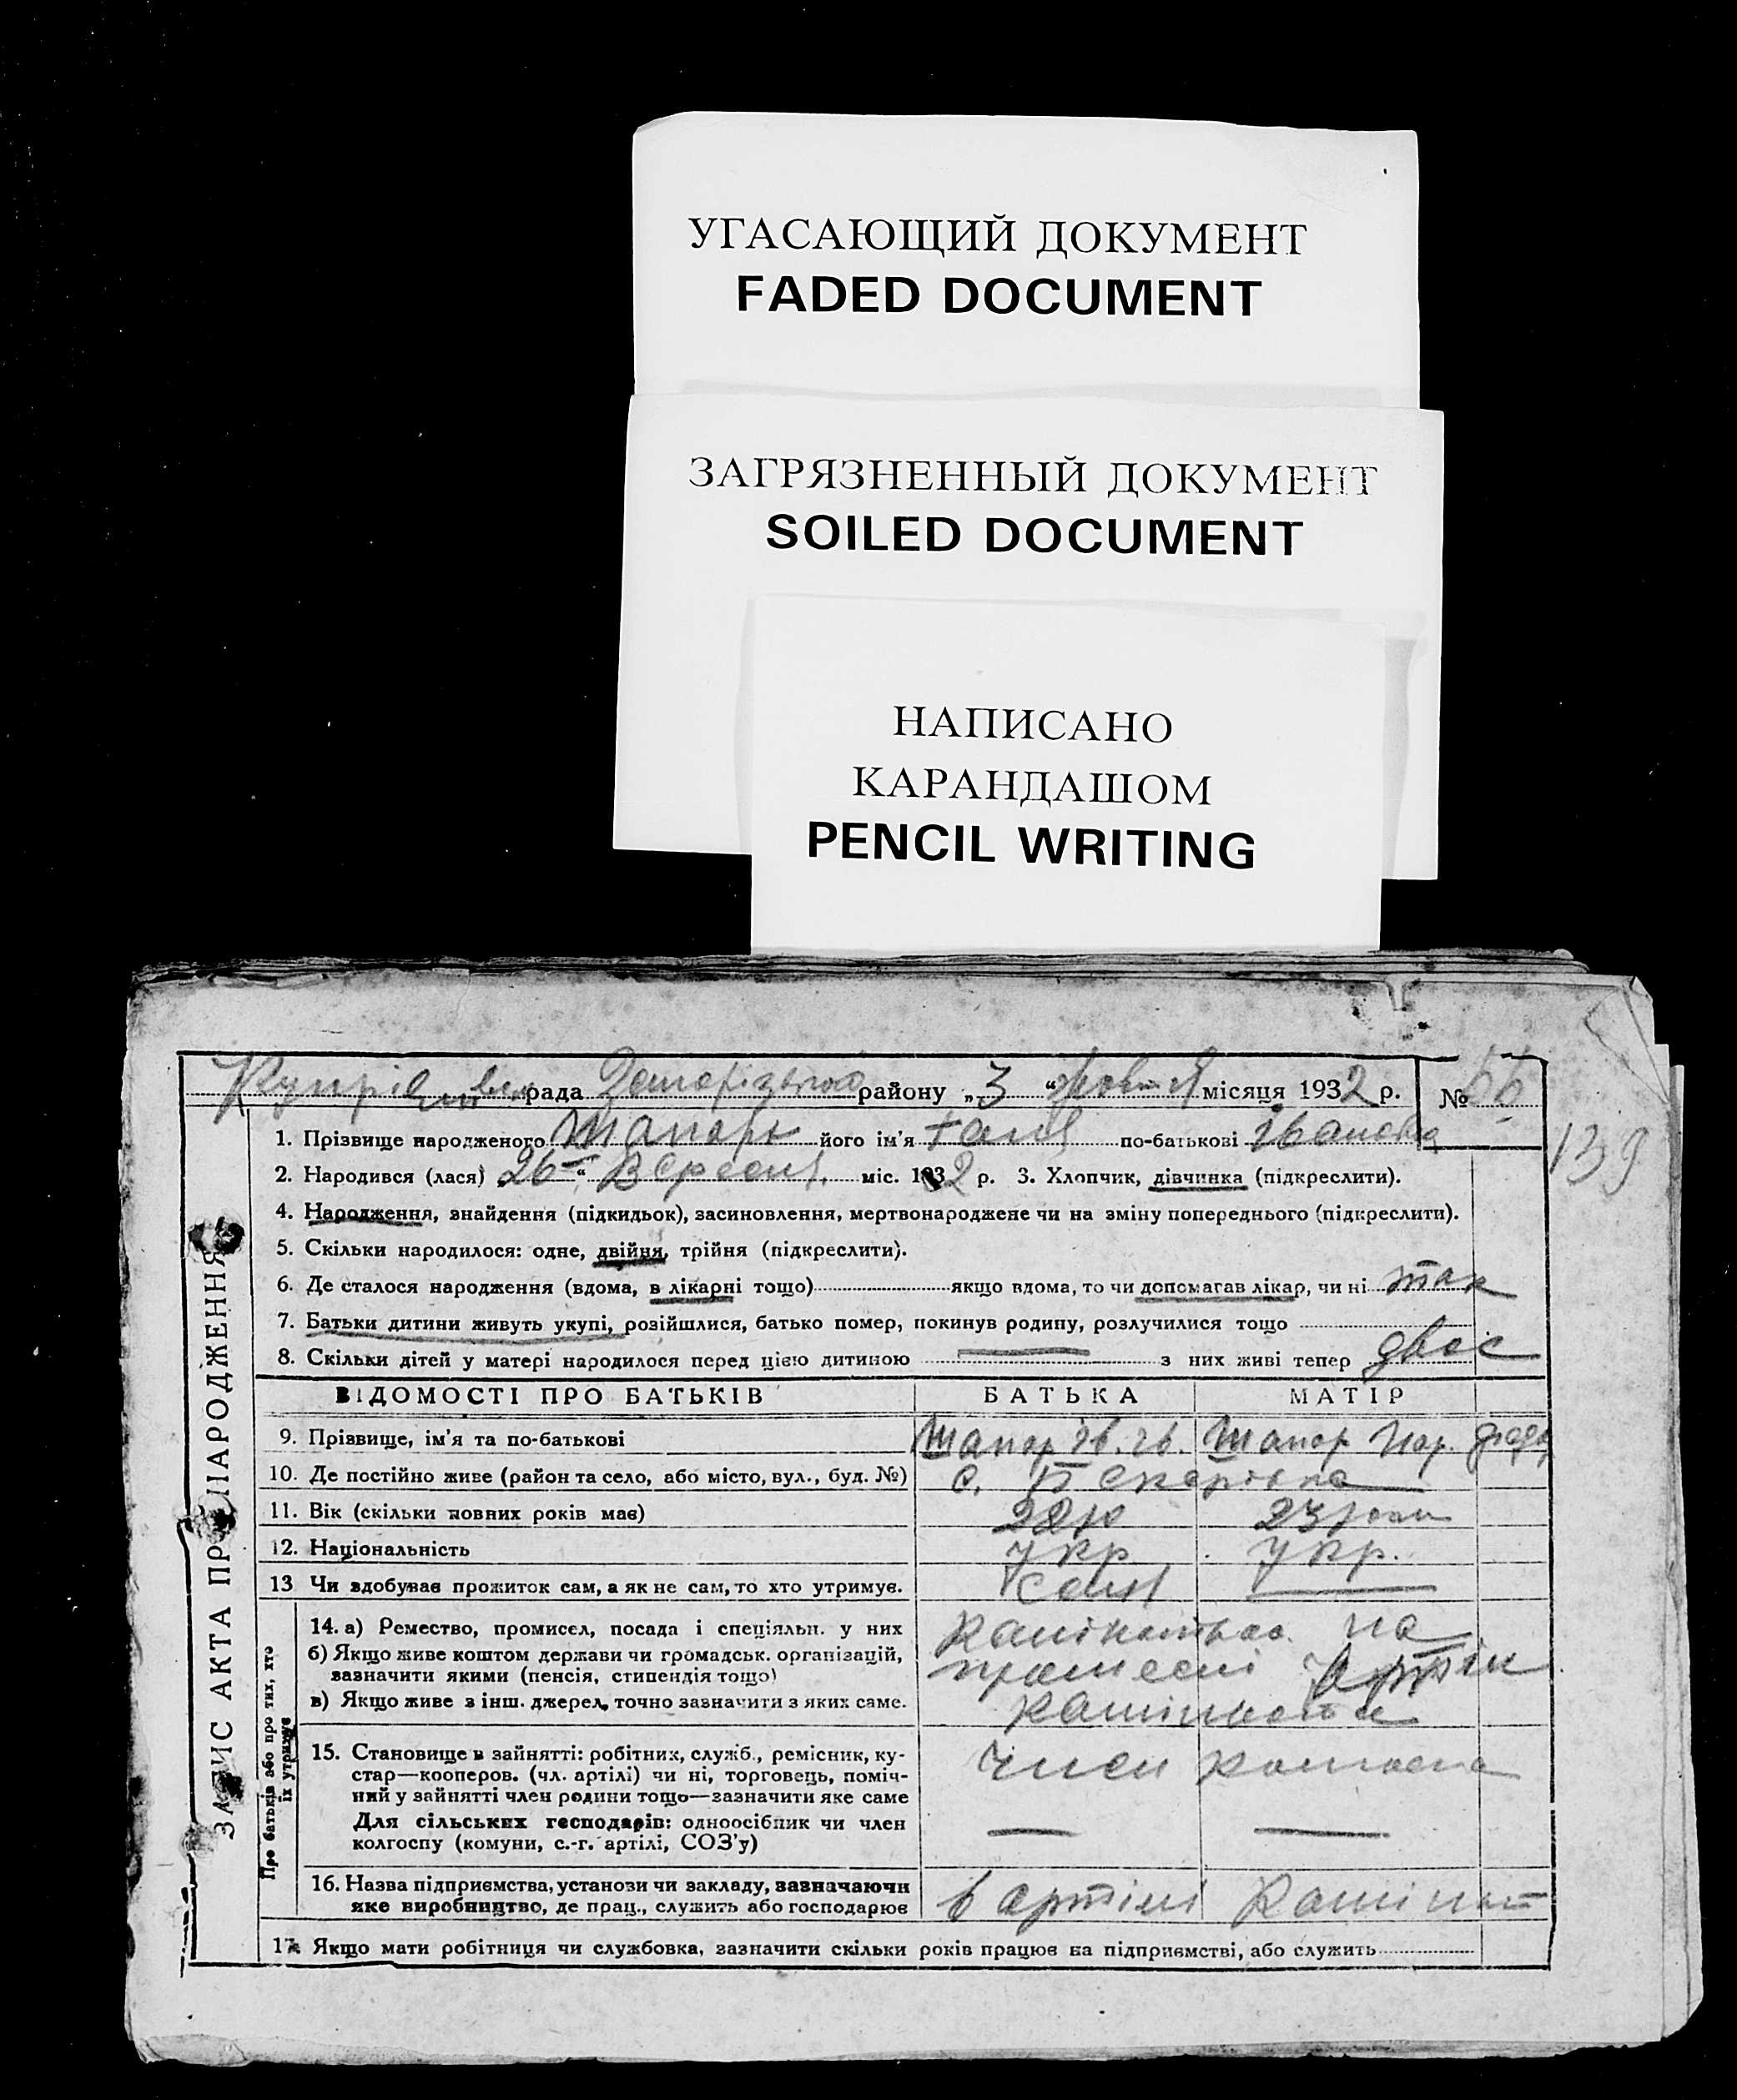 УГАСАЮЩИЙ ДОКУМЕНТ
FADED DOCUMENT
ЗАГРЯЗНЕННЫЙ ДОКУМЕНТ
SOILED DOCUMENT
НАПИСАНО
КАРАНДАШОМ
PENCIL WRITING
рада району „ 3 “ Жовтня місяця 1932 р. № 66
139
ЗАПИС АКТА ПРО НАРОДЖЕННЯ
1. Прізвище народженого його ім'я Галя по-батькові Івановна
2. Народився (лася) 26 “ Вересня міс. 1932 р. 3. Хлопчик, дівчинка (підкреслити).
4. Народження, знайдення (підкидьок), засиновлення, мертвонароджене чи на зміну попереднього (підкреслити).
5. Скільки народилося: одне, двійня, трійня (підкреслити).
6. Де сталося народження (вдома, в лікарні тощо) якщо вдома, то чи допомагав лікар, чи ні так
7. Батьки дитини живуть укупі, розійшлися, батько помер, покинув родину, розлучилися тощо
8. Скільки дітей у матері народилося перед цією дитиною — з них живі тепер двоє
ВІДОМОСТІ ПРО БАТЬКІВ БАТЬКА МАТІР
9. Прізвище, ім'я та по-батькові Шапор Ів. Ів. Шапор
10. Де постійно живе (район та село, або місто, вул., буд. №) с.
11. Вік (скільки повних років має) 28 23
12. Національність укр укр.
13 Чи здобував прожиток сам, а як не сам, то хто утримує. сам —
Про батьків або про тих, хто їх утримує
14. а) Ремество, промисел, посада і спеціяльн. у них на
б) Якщо живе коштом держави чи громадськ. організацій,
зазначити якими (пенсія, стипендія тощо)
в) Якщо живе з інш. джерел, точно зазначити з яких саме.
15. Становище в зайнятті: робітник, служб., ремісник, ку-
стар—кооперов. (чл. артілі) чи ні, торговець, поміч- член
ний у зайнятті член родини тощо—зазначити яке саме
Для сільських господарів: одноосібник чи член — —
колгоспу (комуни, с.-г. артілі, СОЗ'у)
16. Назва підприємства, установи чи закладу, зазначаючи
яке виробництво, де прац., служить або господарює в артілі
17. Якщо мати робітниця чи службовка, зазначити скільки років працює на підприємстві, або служить